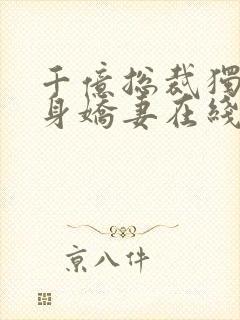 千億總裁獨
身嬌妻在綫
京八件